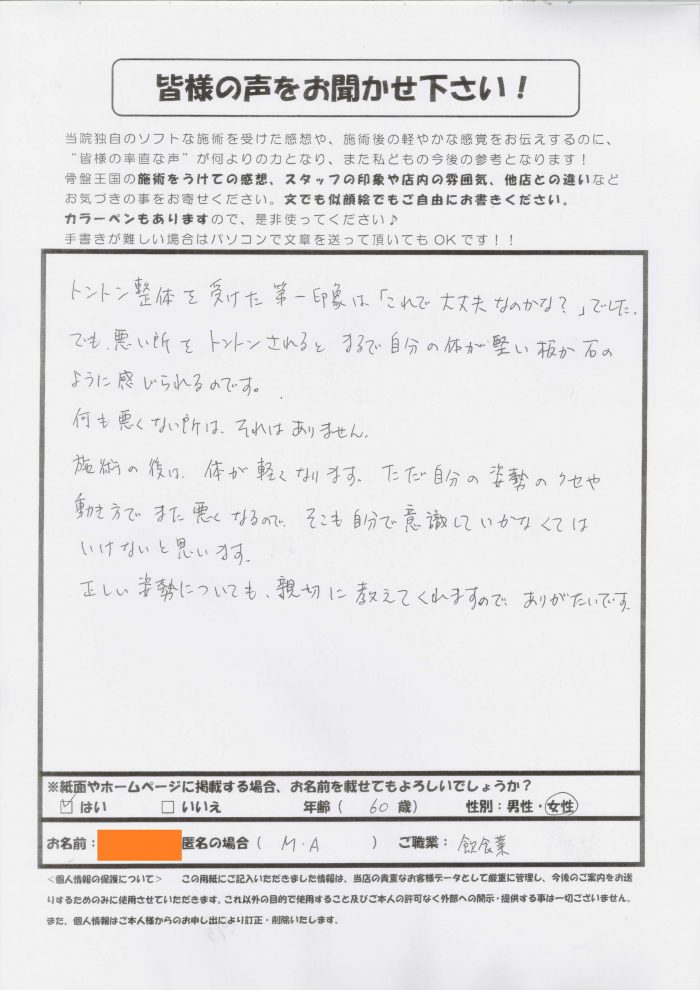 皆様の声をお聞かせ下さい！
当院独自のソフトな施術を受けた感想や、施術後の軽やかな感覚をお伝えするのに、
“皆様の率直な声”が何よりの力となり、また私どもの今後の参考となります！
骨盤王国の施術をうけての感想、スタッフの印象や店内の雰囲気、他店との違いなど
お気づきの事をお寄せください。文でも似顔絵でもご自由にお書きください。
カラーペンもありますので、是非使ってください♪
手書きが難しい場合はパソコンで文章を送って頂いてもOKです！！
トントン整体を受けた第一印象は「これで大丈夫なのかな？」でした。
でも、悪い所をトントンされると まるで自分の体が堅い板か石の
ように感じられるのです。
何も悪くない所は、それはありません。
施術の後は、体が軽くなります。ただ自分の姿勢のクセや
動き方でまた悪くなるので、そこも自分で意識していかなくては
いけないと思います。
正しい姿勢についても、親切に教えてくれますので、ありがたいです。
※紙面やホームページに掲載する場合、お名前を載せてもよろしいでしょうか？
☑ はい □ いいえ 年齢（ 60 歳） 性別：男性・女性
お名前： 匿名の場合（ M・A ） ご職業： 飲食業
＜個人情報の保護について＞ この用紙にご記入いただきました情報は、当店の貴重なお客様データとして厳重に管理し、今後のご案内をお送
りするためのみに使用させていただきます。これ以外の目的で使用すること及びご本人の許可なく外部への開示・提供する事は一切ございません。
また、個人情報はご本人様からのお申し出により訂正・削除いたします。